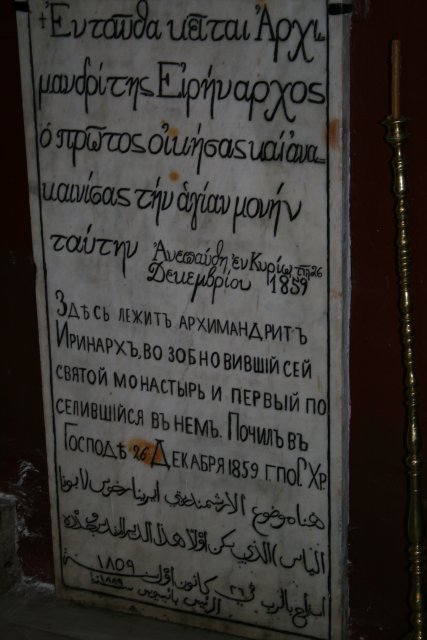 + Ἐνταῦθα κεῖται Ἀρχι-
μανδρίτης Εἰρήναρχος
ὁ πρῶτος οἰκήσας καὶ ἀνα-
καινίσας τὴν ἁγίαν μονὴν
ταύτην Ἀνεπαύθη ἐν Κυρίῳ τῇ 26
Δεκεμβρίου 1859
ЗДѢСЬ ЛЕЖИТЪ АРХИМАНДРИТЪ
ИРИНАРХЪ, ВОЗОБНОВИВШІЙ СЕЙ
СВЯТОЙ МОНАСТЫРЬ И ПЕРВЫЙ ПО
СЕЛИВШІЙСЯ ВЪ НЕМЪ. ПОЧИЛЪ ВЪ
ГОСПОДѢ 26 ДЕКАБРЯ 1859 Г ПО Р. ХР.
هنا موضوع الارشمندريتي
الذي سكن اولا هذا الدير
بالرب في ٢٦ كانون اول سنة ١٨٥٩